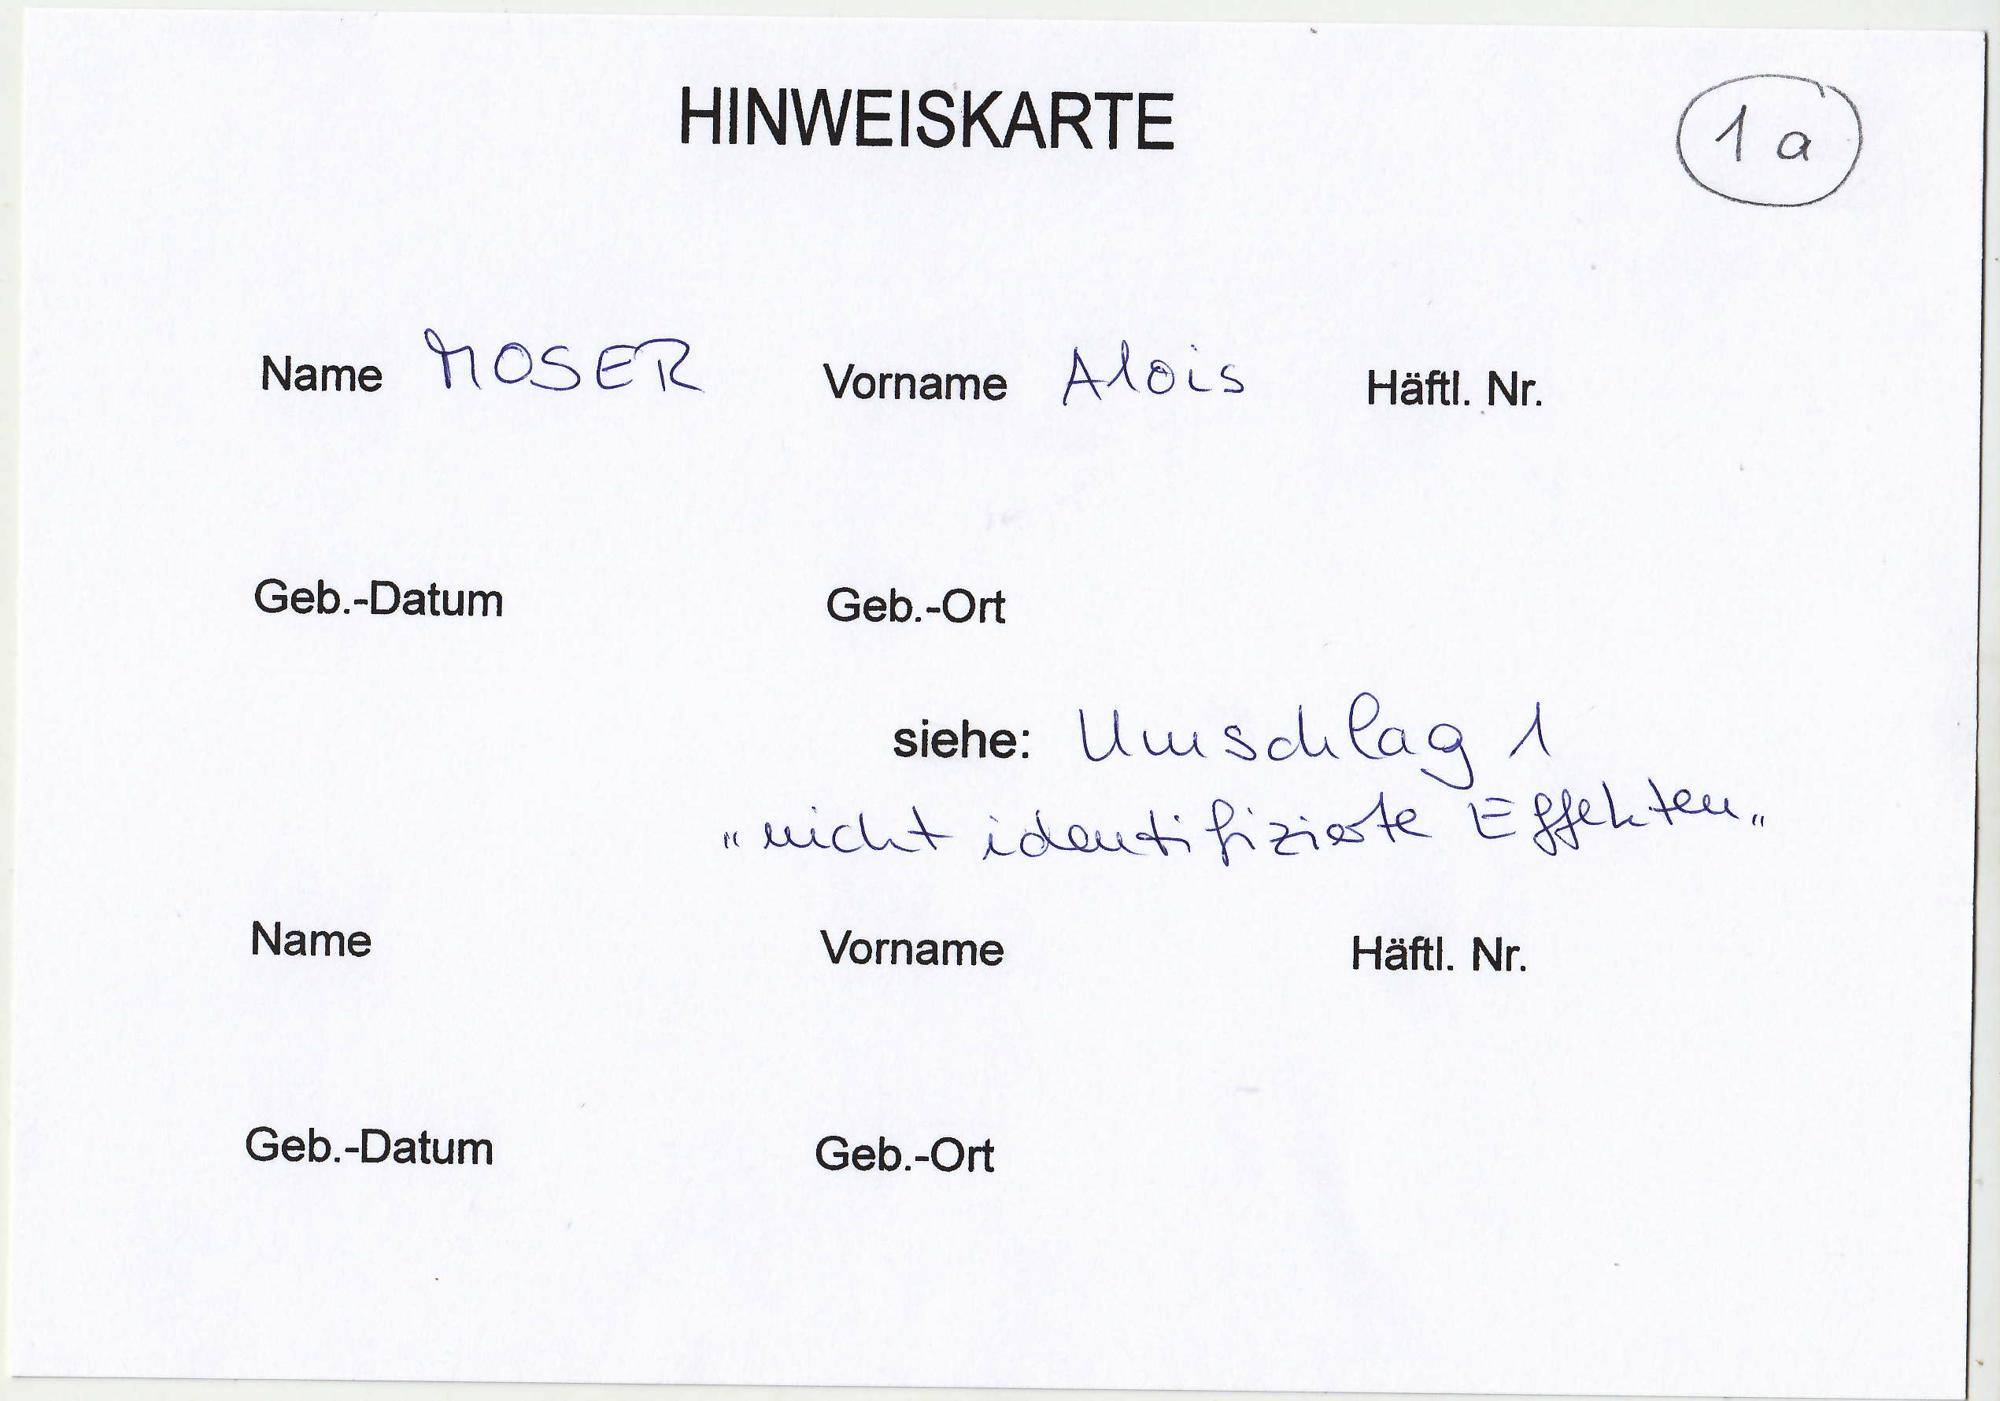 HINWEISKARTE
1a
Name MOSER Vorname Alois Häftl. Nr.
Geb.-Datum Geb.-Ort
siehe: Umschlag 1
"nicht identifizierte Effekten"
Name Vorname Häftl. Nr.
Geb.-Datum Geb.-Ort